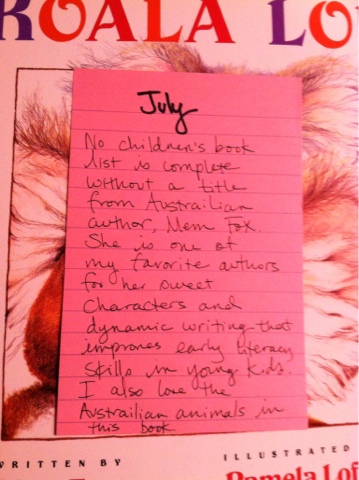 KOALA LO
July
No children's book
list is complete
without a title
from Austrailian
author, Mem Fox.
She is one of
my favorite authors
for her sweet
characters and
dynamic writing that
improves early literacy
skills in young kids.
I also love the
Austrailian animals in
this book
WRITTEN BY
ILLUSTRATED
Pamela Lof